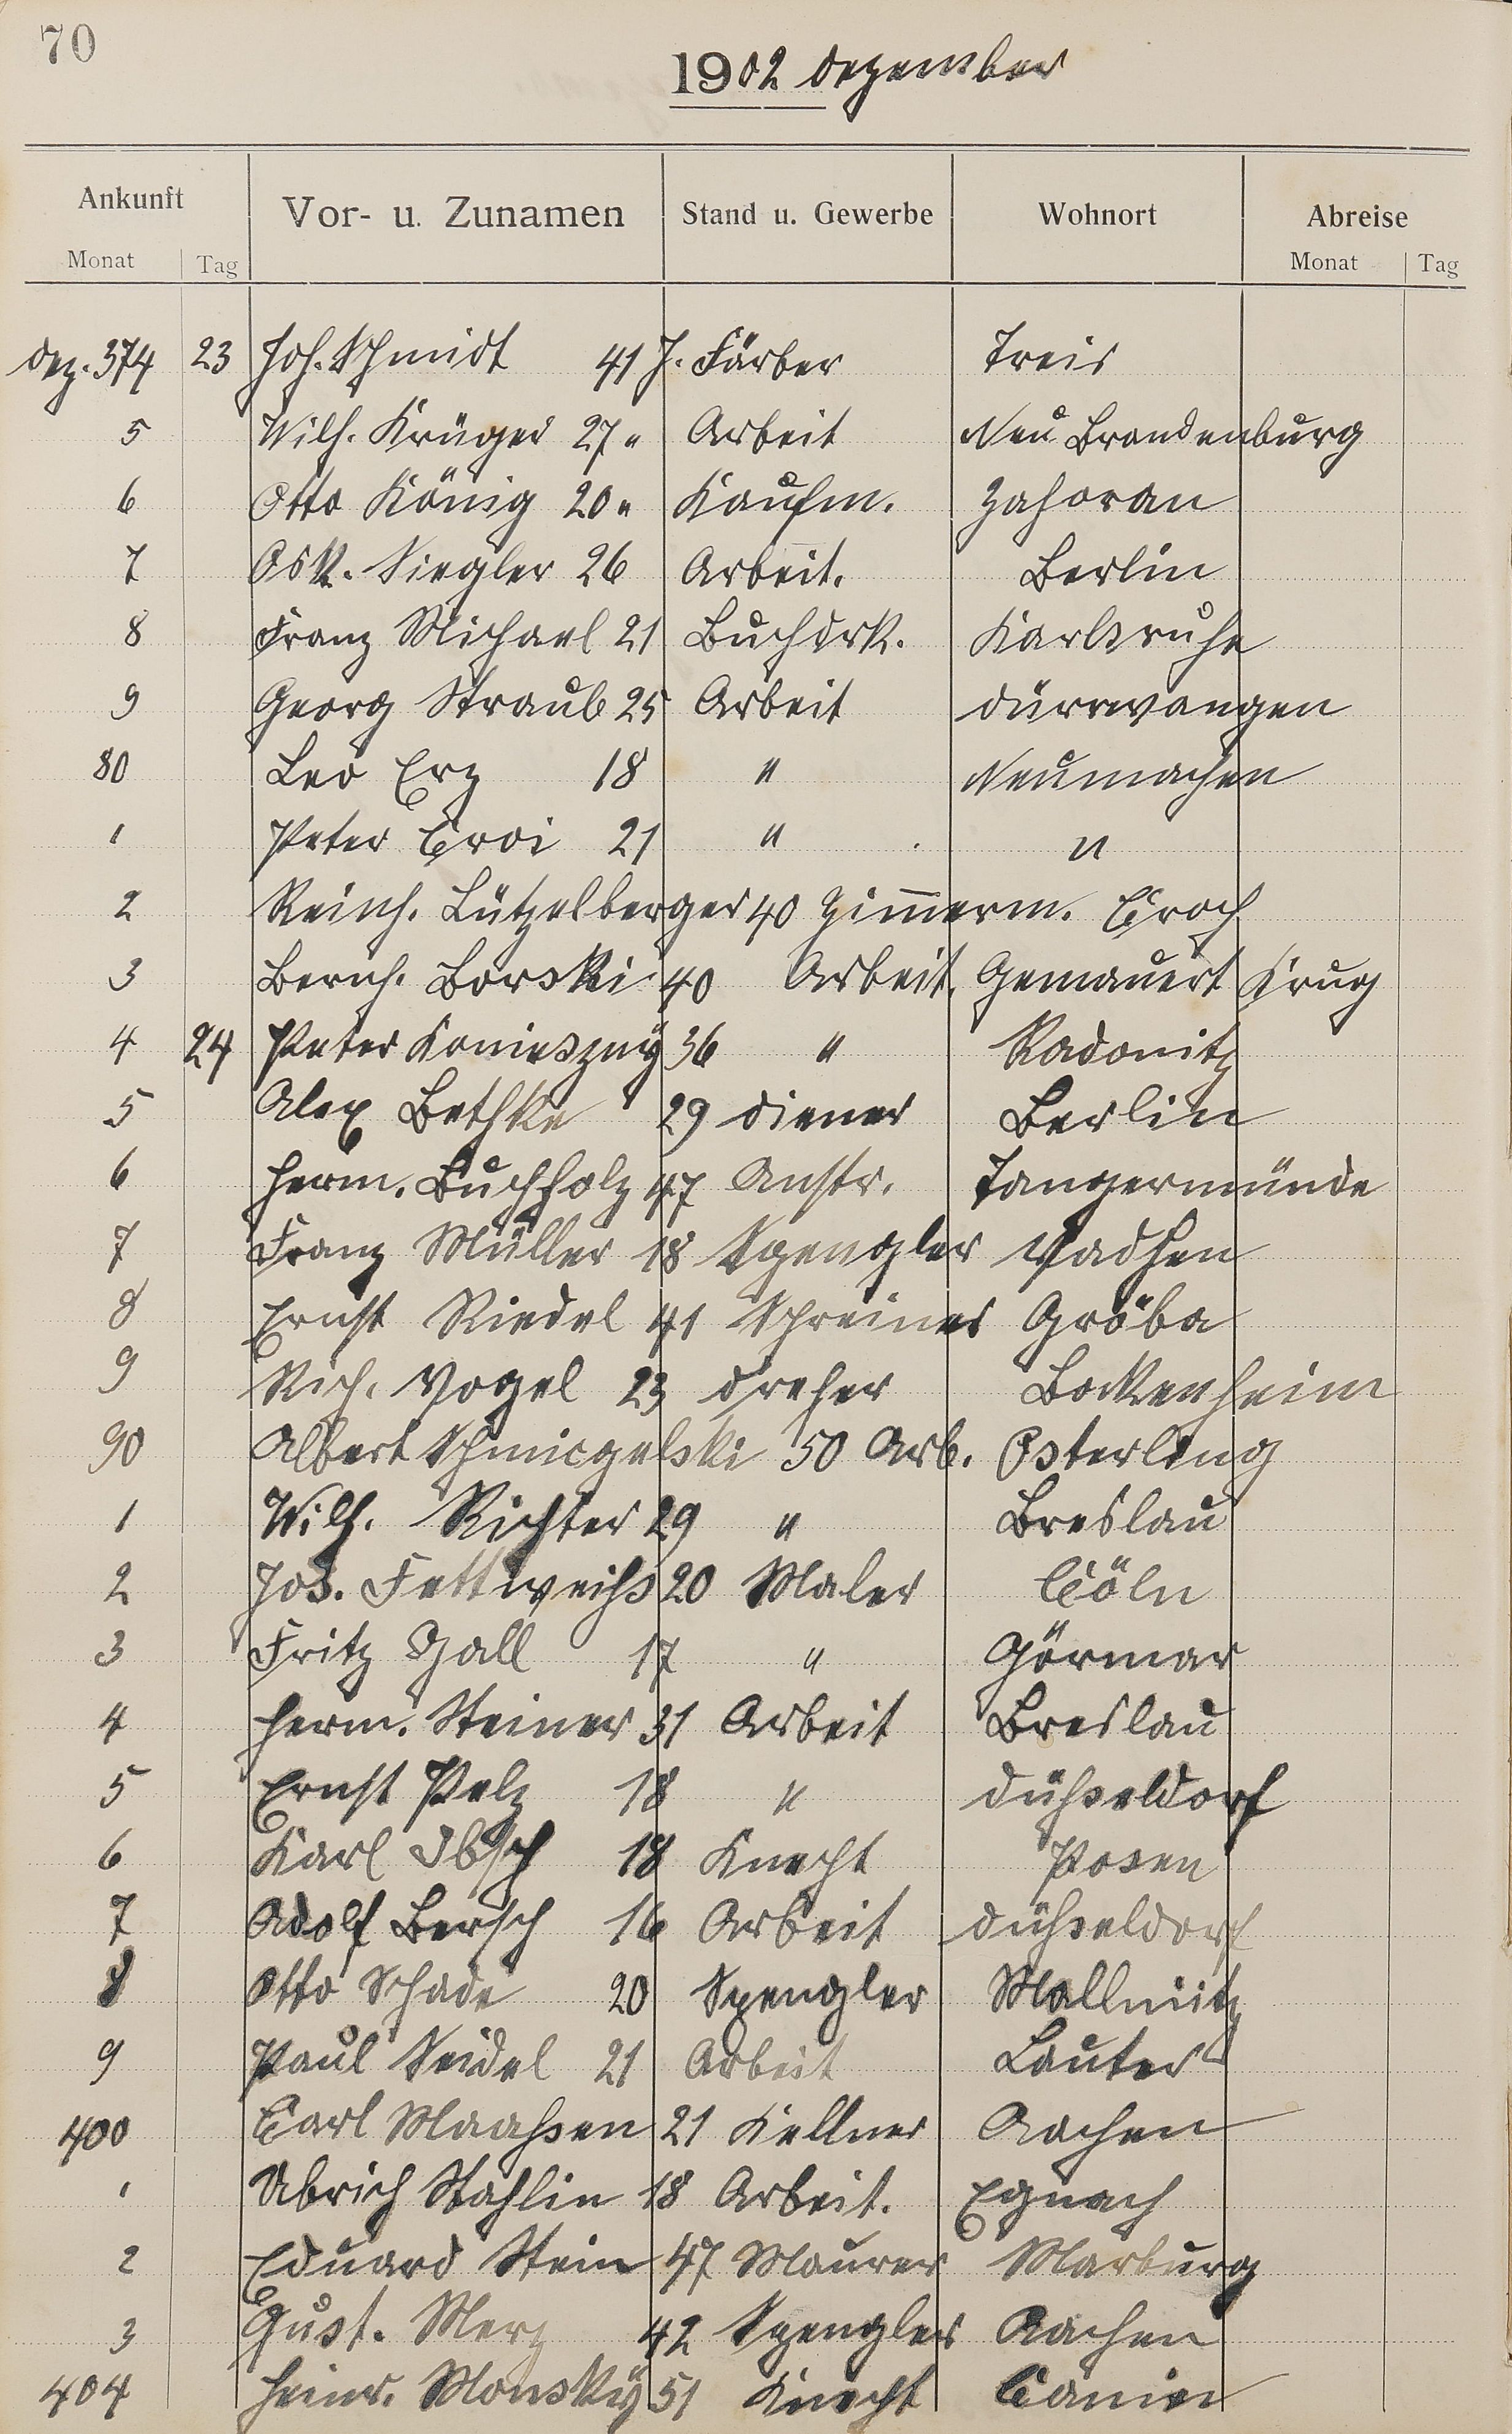 70
1902 Dezember
Ankunft Vor- u. Zunamen Stand u. Gewerbe Wohnort Abreise
Monat Tag Monat Tag
Dez. 374 23 Joh. Schmidt 41 J. Färber Treis
5 Wilh. Krüger 27 " Arbeit Neu Brandenburg
6 Otto König 20 " Kaufm. Zahoran
7 Osk. Siegler 26 Arbeit. Berlin
8 Franz Michael 21 Buchdrk. Karlsruhe
9 Georg Straub 25 Arbeit Dürrwangen
80 Leo Erz 18 " Neumachen
1 Peter Croi 21 " "
2 Reinh. Lützelberger 40 Zimmerm. Croch
3 Bernh. Borski 40 Arbeit. Gemauert Krug
4 24 Peter Konieszny 36 " Radonitz
5 Alex Bethke 29 Diener Berlin
6 Herm. Buchholz 47 Anstr. Tangermünde
7 Franz Müller 18 Spengler
8 Ernst Riedel 41 Schreiner Gröba
9 Rich. Vogel 23 Dreher Bockenheim
90 Albert Schmiegelski 50 Arb. Osterling
1 Wilh. Richter 29 " Breslau
2 Jos. Fettweihs 20 Maler Cöln
3 Fritz Gall 17 " Görmar
4 Herm. Steiner 31 Arbeit Breslau
5 Ernst Pelz 18 " Düßeldorf
6 Karl Ibsch 18 Knecht Posen
7 Adolf Bersch 16 Arbeit Düßeldorf
8 Otto Schade 20 Spengler Mallmitz
9 Paul Seidel 21 Arbeit Lauter
400 Carl Maaßen 21 Kellner Aachen
1 Ulrich Stahlin 18 Arbeit. Egnach
2 Eduard Stein 47 Maurer Marburg
3 Gust. Merz 42 Spengler Aachen
404 Heinr. Monsky 51 Knecht Camin